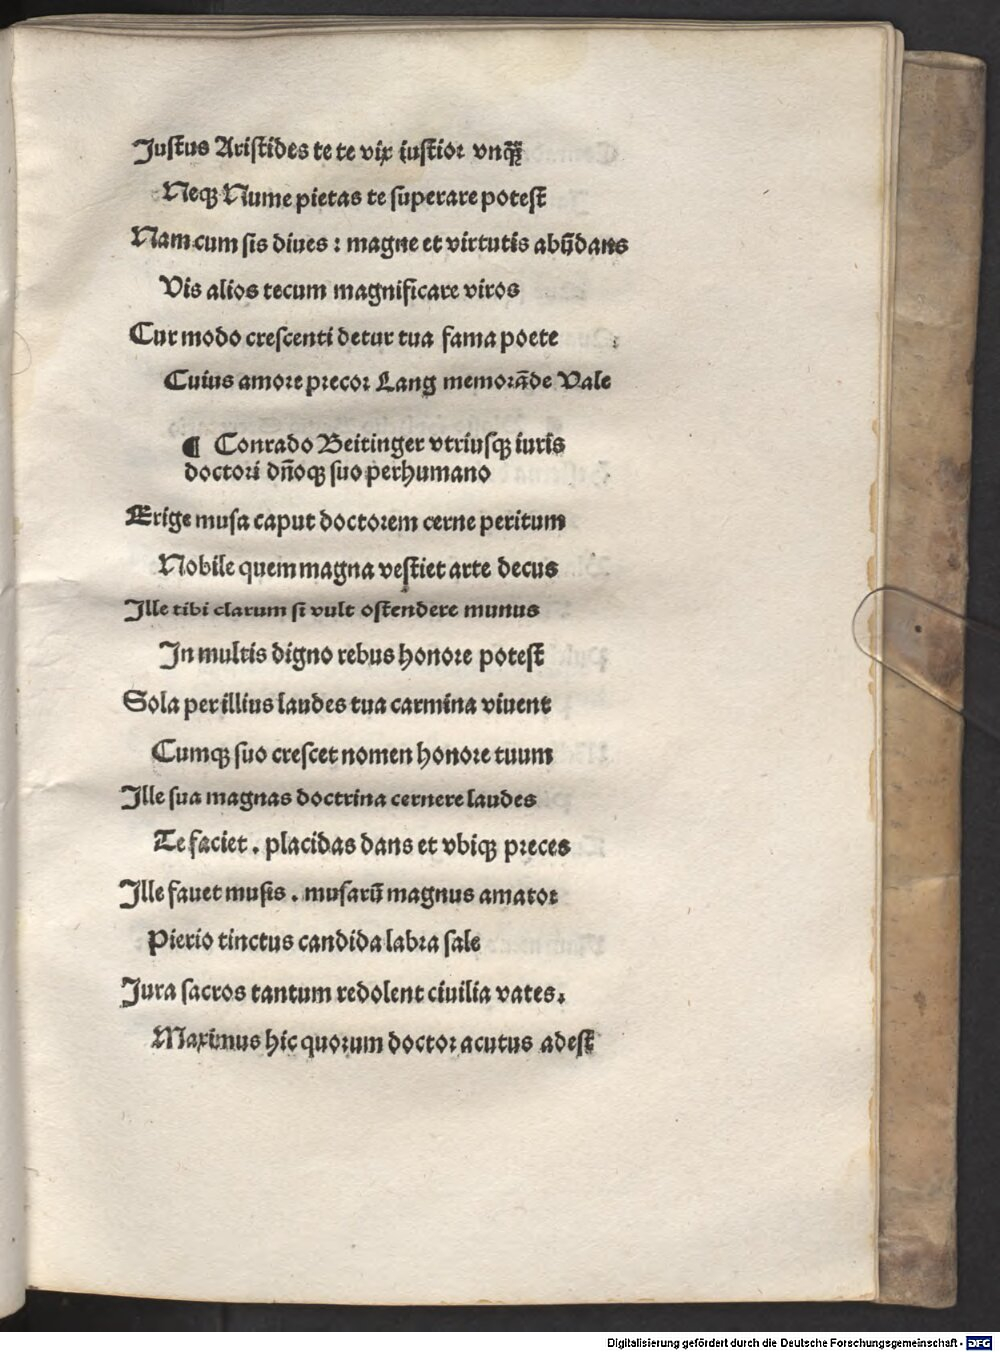 Juſtus Ariſtides te te vix iuſtior vnqꝫ̄
Neqꝫ Nume pietas te ſuperare poteſt
Nam cum ſis diues : magne et virtutis abūdans
Vis alios tecum magnificare viros
Cur modo creſcenti detur tua fama poete
Cuius amore precor Lang memorāde Vale
¶ Conrado Beitinger vtriuſqꝫ iuris
doctori dn̄oqꝫ ſuo perhumano
Erige muſa caput doctorem cerne peritum
Nobile quem magna veſtiet arte decus
Ille tibi clarum ſi vult oſtendere munus
In multis digno rebus honore poteſt
Sola per illius laudes tua carmina viuent
Cumqꝫ ſuo creſcet nomen honore tuum
Ille ſua magnas doctrina cernere laudes
Te faciet . placidas dans et vbiqꝫ preces
Ille fauet muſis . muſarū magnus amator
Pierio tinctus candida labra ſale
Jura ſacros tantum redolent ciuilia vates.
Maximus hic quorum doctor acutus adeſt
Digitalisierung gefördert durch die Deutsche Forschungsgemeinschaft - DFG